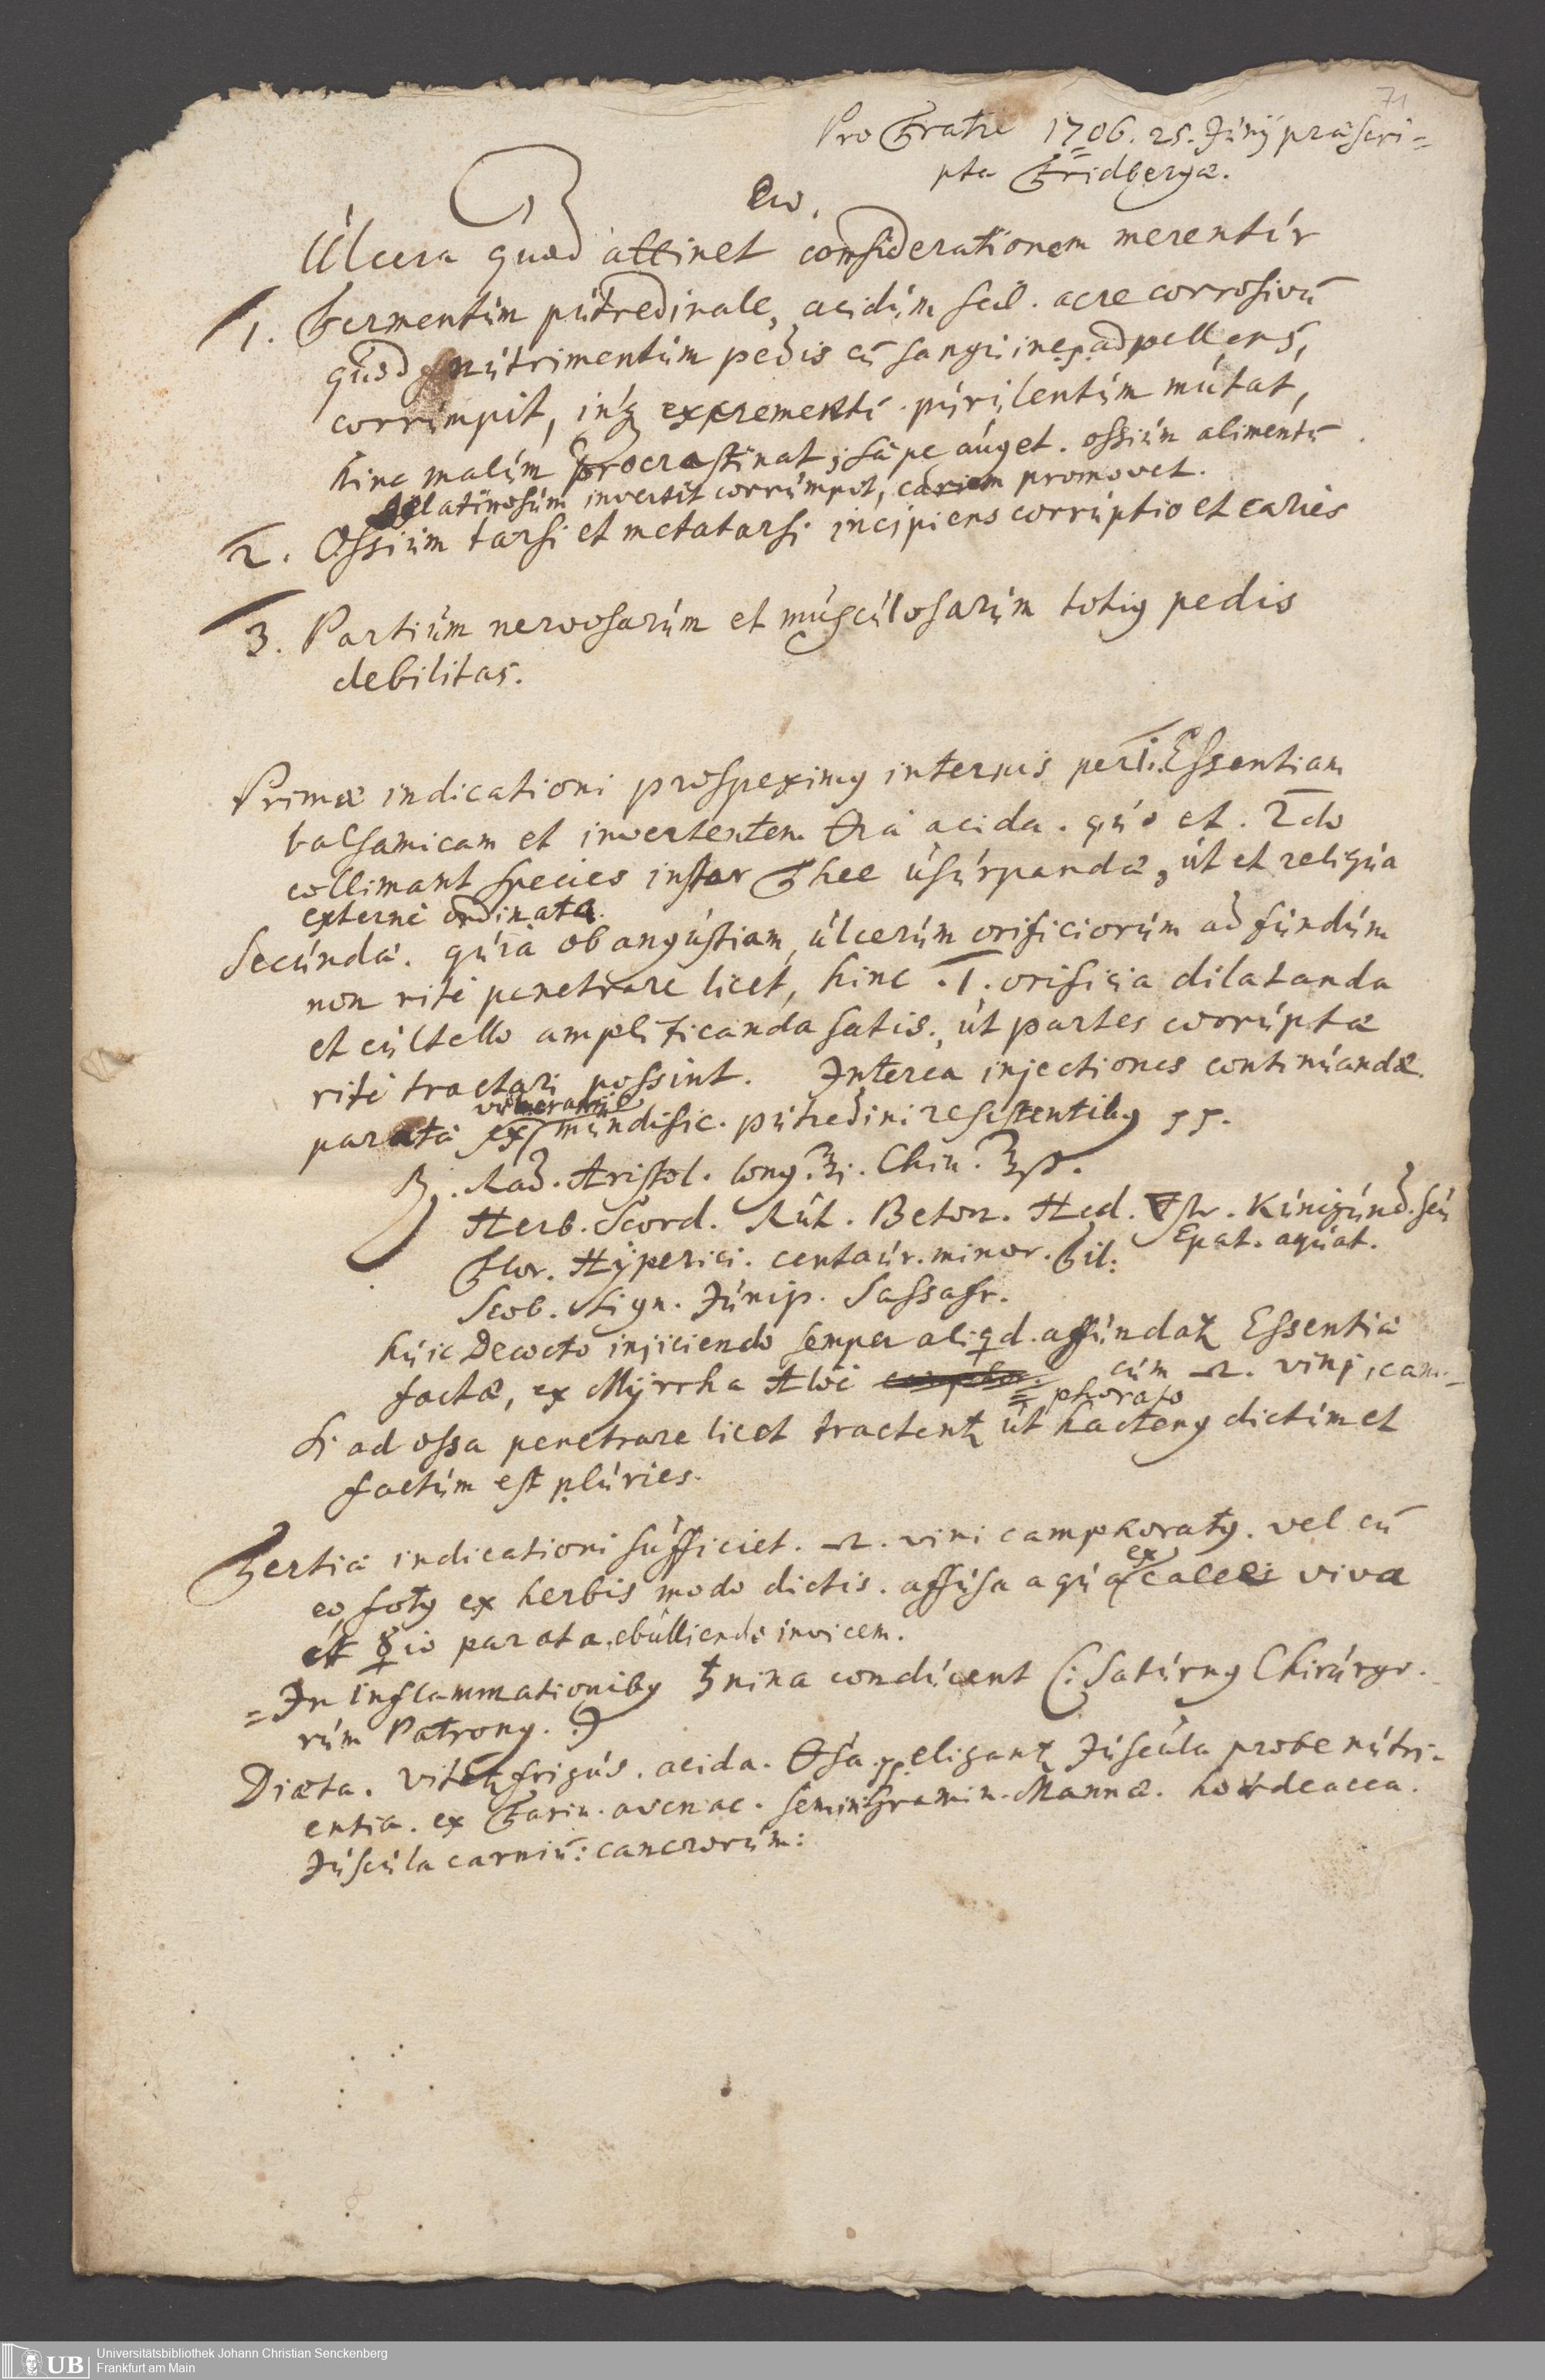 71
Pro Fratre 1706. 25. Junij præscri=
pta Fridbergæ.
Ulcera quod attinet considerationem merentur
1. Fermentum putredinale, acidum scil. acre corrosivū
quod nutrimentum pedis cū sanguine adpellens,
corrumpit, inq excrementū purulentum mutat,
hinc malum procrastinat, sæpe auget. ossium alimentū
gelatinosum invertit corrumpit, cariem promovet.
2. Ossium tarsi et metatarsi incipiens corruptio et caries
3. Partium nervosarum et musculosarum totiq pedis
debilitas.
Primæ indicationi prospeximq internis per 1. Essentiam
balsamicam et invertentem acida. quo et. 2do
collimant species instar Thee usurpandæ, ut et reliqua
externè ordinata.
Secunda. quia ob angustiam, ulcerum orificiorum ad fundum
non ritè penetrare licet, hinc .1. orificia dilatanda
et cultello amplificanda satis., ut partes corruptæ
ritè tractari possint. Interea injectiones continuandæ.
parata ex mundific. putredini resistentibq
℞. Rad. Aristol. long. ℥j. Chin. ℥ß.
Herb. Scord. Rut. Beton. Hed. 🜃str. Kunigund. seu
Epat. aquat.
Flor. Hyperici. centaur. minor.
Scob. Lign. Junip. Sassafr.
huic Decocto injiciendo semper aliqd. affundat Essentiæ
factæ, ex Myrrha Aloë cum vini, cam=
=phorato
Si ad ossa penetrare licet tractent ut hactenq dictum et
factum est pluries.
Tertiæ indicationi sufficiet. vini camphoratq. vel cū
eo, fotq ex herbis modo dictis. affusa aqua ex calce viva
et ☿io parata, ebulliendo invicem.
=In inflammationibq ♄nina conducent (: Saturnq Chirurgo.
rum Patronq. :)
Diæta. vitet frigus. acida. eligant Juscula probe nutri=
entia. ex Farin. avenac. semin. Gramin. Mannæ. hordeacea.
Juscula carniū: cancrorum:
Universitätsbibliothek Johann Christian Senckenberg
UB Frankfurt am Main